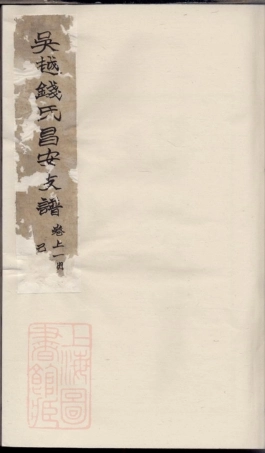 吳越錢氏昌安支譜
卷上一
己
上海圖
書館藏